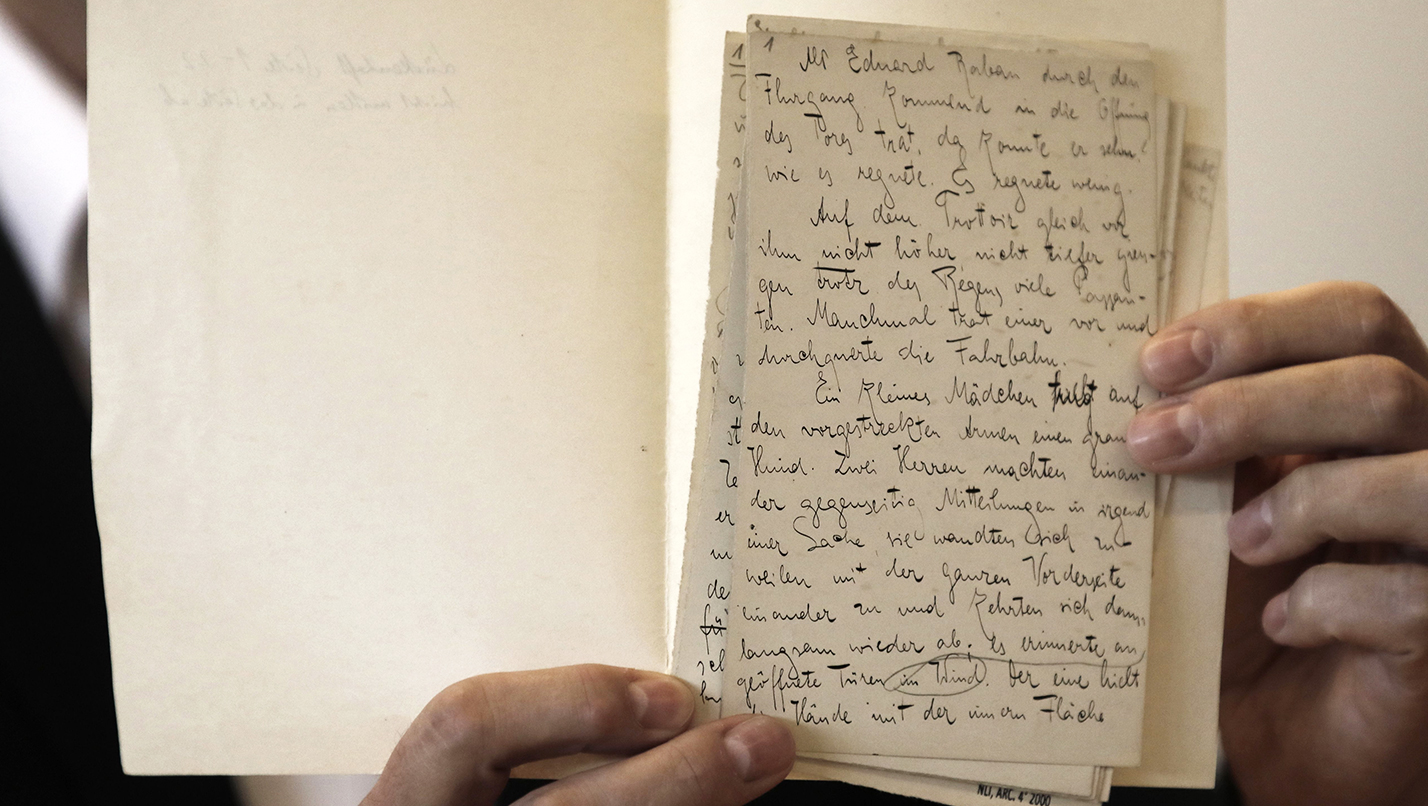 1
Als Eduard Raban durch den
Flurgang kommend in die Öffnung
des Tores trat, da konnte er sehn,
wie es regnete. Es regnete wenig.
Auf dem Trottoir gleich vor
ihm nicht höher nicht tiefer gien-
gen trotz des Regens viele Passan-
ten. Manchmal trat einer vor und
durchquerte die Fahrbahn.
Ein kleines Mädchen auf
den vorgestreckten Armen einen grauen
Hund. Zwei Herren machten einan-
der gegenseitig Mittheilungen in irgend
einer Sache, sie wandten sich zu-
weilen mit der ganzen Vorderseite
einander zu und kehrten sich dann
langsam wieder ab. Es erinnerte an
geöffnete Türen im Wind. Der eine hielt
Hände mit der innern Fläche
1
st
er
de
für
NLI, ARC. 4° 2000